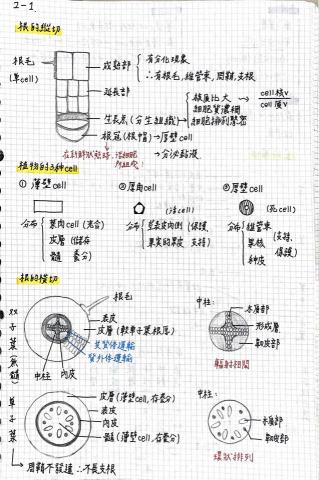 2-1.
根的縱切
根毛
(單cell)
成熟部
有分化現象
∴有根毛,維管束,周鞘,支根
延長部
核質比大 → cell核V
cell質V
細胞質濃稠
生長點(分生組織) → 細胞排列緊密
根冠(根帽) → 厚壁cell
→ 分泌黏液
植物的3種cell
① 薄壁cell
② 厚角cell
③ 厚壁cell
(活cell)
(死cell)
分布
葉肉cell(光合)
皮層(儲存
髓 養分)
分布
莖表皮內側(保護、
果實的果皮 支持)
分布
維管束
果核
種皮
(支持、
保護)
根的橫切
根毛
表皮
皮層(較莖&葉根厚)
內皮
中柱
雙子葉(無髓)
中柱:
木質部
形成層
韌皮部
輻射相間
單子葉
皮層(薄壁cell,存養分)
表皮
內皮
髓(薄壁cell,存養分)
中柱:
木質部
韌皮部
環狀排列
周鞘不發達 ∴不長支根